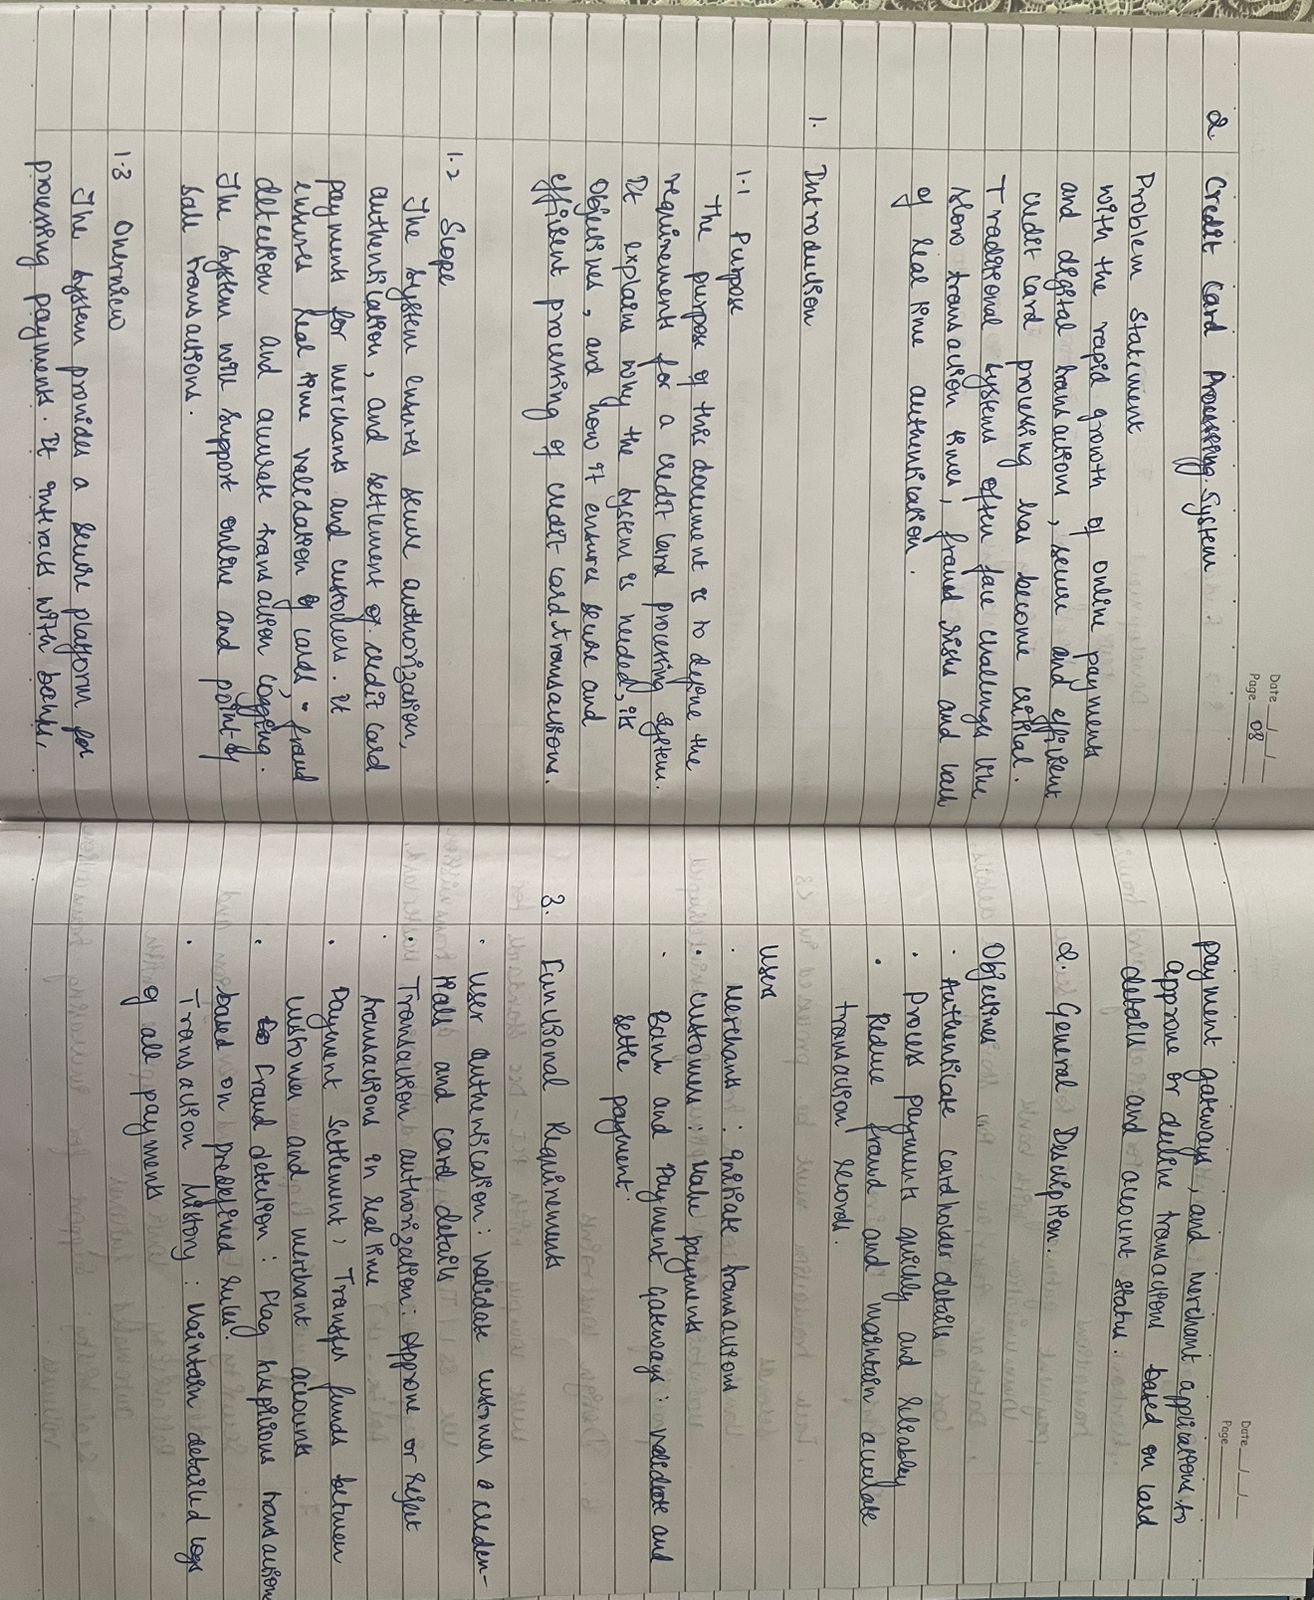 Date __/__/__
Page 08
2. Credit Card Processing System
Problem Statement
With the rapid growth of online payments
and digital transactions, secure and efficient
credit card processing has become critical.
Traditional systems often face challenges like
slow transaction times, fraud risks and lack
of real time authentication.
1. Introduction
1.1 Purpose
The purpose of this document is to define the
requirements for a credit card processing system.
It explains why the system is needed, its
Objectives, and how it ensures secure and
efficient processing of credit card transactions.
1.2 Scope
The system ensures secure authorization,
authentication, and settlement of credit card
payments for merchants and customers. It
ensures real time validation of cards, fraud
detection and accurate transaction logging.
The system will support online and point-of
sale transactions.
1.3 Overview
The system provides a secure platform for
processing payments. It interacts with banks,
Date __/__/__
Page
payment gateways, and merchant applications to
approve or decline transactions based on card
details and account status.
2. General Description.
Objectives
• Authenticate cardholder details
• Process payments quickly and reliabley
• Reduce fraud and maintain accurate
transaction records.
Users
• Merchants: initiate transactions
• Customers: payments
• Bank and Payment Gateways: validate and
settle payment.
3. Functional Requirements
• User authentication: validate customer creden-
tials and card details
• Transaction authorization: Approve or reject
transactions in real time
• Payment Settlement: Transfer funds between
customer and merchant accounts
• Fraud detection: Flag suspicious transactions
based on predefined rules.
• Transaction History: Maintain detailed logs
of all payments